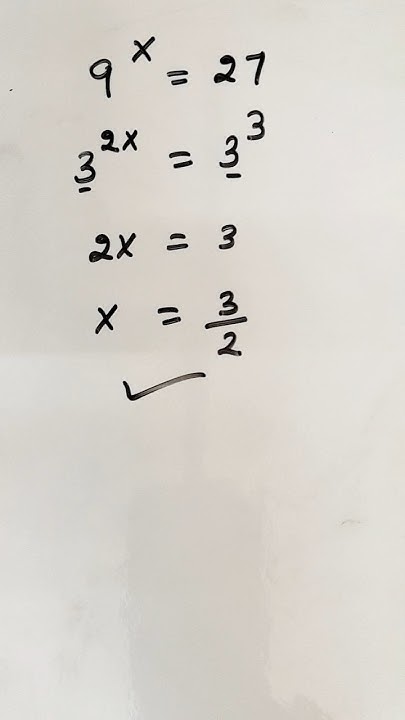 9^x = 27
3^2x = 3^3
2x = 3
x = 3/2
✓